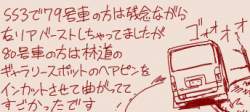 SS3で79号車の方は残念ながら
右リアバーストしちゃってましたが
80号車の方は林道の
ギャラリースポットのヘアピンを
インカットさせて曲がってて
すごかったです
ゴォォォォ